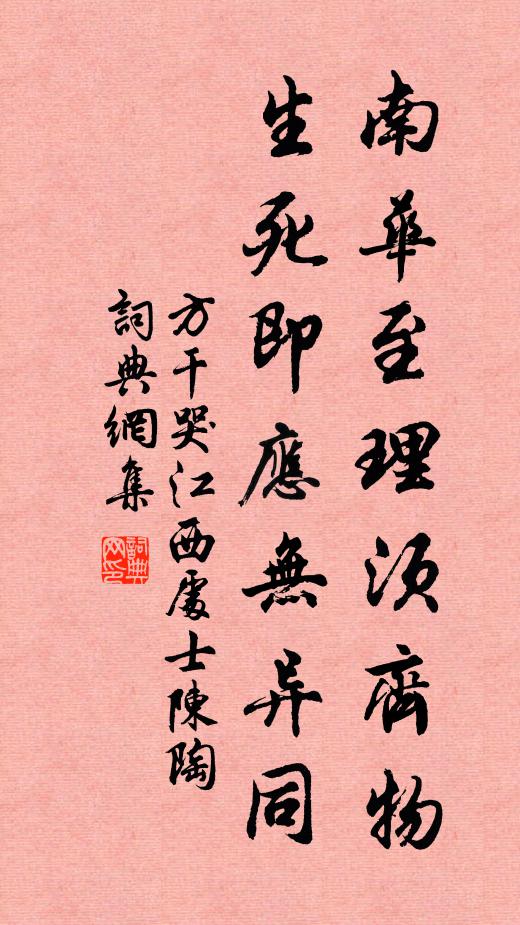 南華至理須齊物
生死即應無异同
方干哭江西處士陳陶
詞典網集
詞典网印